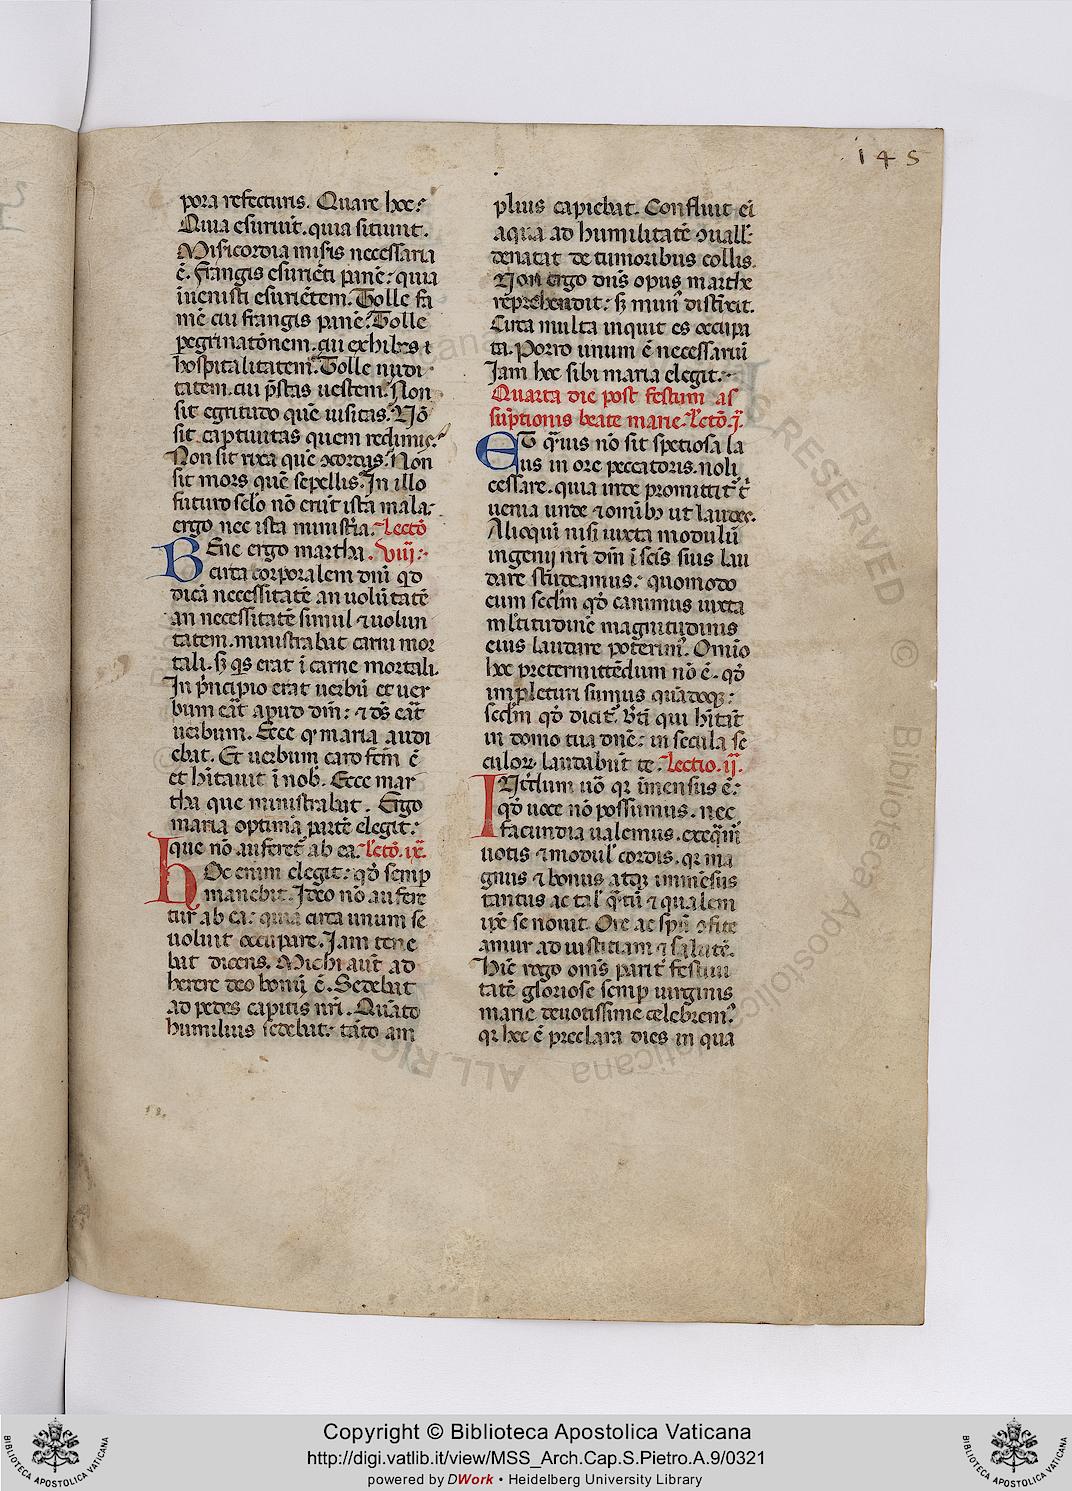 145
pora refecturis. Quare hoc?
Quia esuriūt. quia sitiunt.
Misericordia miseris necessaria
ē. Frangis esuriēti panē: quia
īuenisti esuriētem. Tolle fa
mē cui frangis panē? Tolle
pegrinatōnem. cui exhibes ⁊
hospitalitatem? Tolle nudi
tatem. cui p̄stas uestem? Non
sit egritudo quē uisitas? Nō
sit captiuitas quem redimis?
Non sit rixa quē ↄcordas? Non
sit mors quē sepellis? In illo
futuro sclo nō erūt ista mala:
ergo nec ista ministria. Lectō
BEne ergo martha. viij:
circa corporalem dnī qd
dicā necessitatē an uolūtatē
an necessitatē simul ⁊ uolun
tatem. ministrabat carni mor
tali. sȝ qs erat ī carne mortali.
In p̄ncipio erat uerbū et uer
bum eāt apud dm̄: ⁊ ds̄ eāt
uerbum. Ecce qđ maria audi
ebat. Et uerbum caro fcm̄ ē
et hītauit ī nob̄. Ecce mar
tha que ministrabat. Ergo
maria optimā partē elegit:
que nō auferet᷑ ab ea. Lectō. ix.
hOc enim elegit: qđ semp
manebit. Ideo nō aufere
tur ab ea: quia circa unum se
uoluit occupare. Iam tene
bat dicens. Michi aūt ad
herere deo bonū ē. Sedebat
ad pedes capitis nrī. Quāto
humilius sedebat: tāto am
plius capiebat. Confluit eī
aqua ad humilitatē ↄuall̄:
denatat de tumoribus collis.
Non ergo dns̄ opus marthe
reprehendit: sȝ mun᷑ distīxit.
Circa multa inquit es occupa
ta. Porro unum ē necessariū
Iam hoc sibi maria elegit:
Quarta die post festum as
sūptionis beate marie. Lectō. j.
ET q̄uis nō sit spetiosa la
us in ore peccatoris. noli
cessare. quia inde promittit᷑ t᷑
uenia unde ⁊ omībȝ ut laudes.
Alioquin nisi iuxta modulū
ingenij nrī dm̄ ī scīs suis lau
dare studeamus: quomodo
eum scdm̄ qđ canimus iuxta
ml̄titudinē magnitudinis
eius laudare poterim᷒. Omīo
hoc pretermittēdum nō ē. qđ
impleturi sumus quādoqȝ:
scdm̄ qđ dicit᷑. Btī qui hītāt
in domo tua dnē: in secula se
culoꝝ laudabūt te. Lectio. ij.
INtātum uō qr īmensus ē:
qđ uoce nō possumus. nec
facundia ualemus. exeq̄mur
uotis ⁊ modul̄ cordis. qr ma
gnus ⁊ bonus atqȝ immēsus
tantus ac tal̄ q̄tū ⁊ qualem
ip̄e se nouit. Ore ac spū ↄfite
amur ad iustitiam ⁊ salutē.
Hinc rogo om̄s parit᷑ festiui
tatē gloriose semp uirginis
marie deuotissime celebrem᷒:
qr hec ē preclara dies in qua
Copyright © Biblioteca Apostolica Vaticana
http://digi.vatlib.it/view/MSS_Arch.Cap.S.Pietro.A.9/0321
powered by DWork • Heidelberg University Library